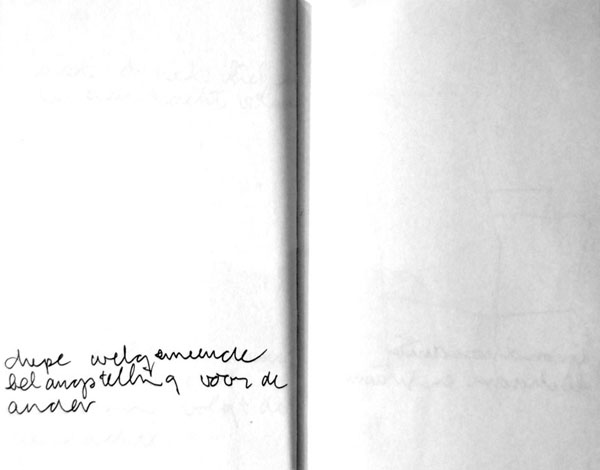 diepe welgemeende
belangstelling voor de
ander